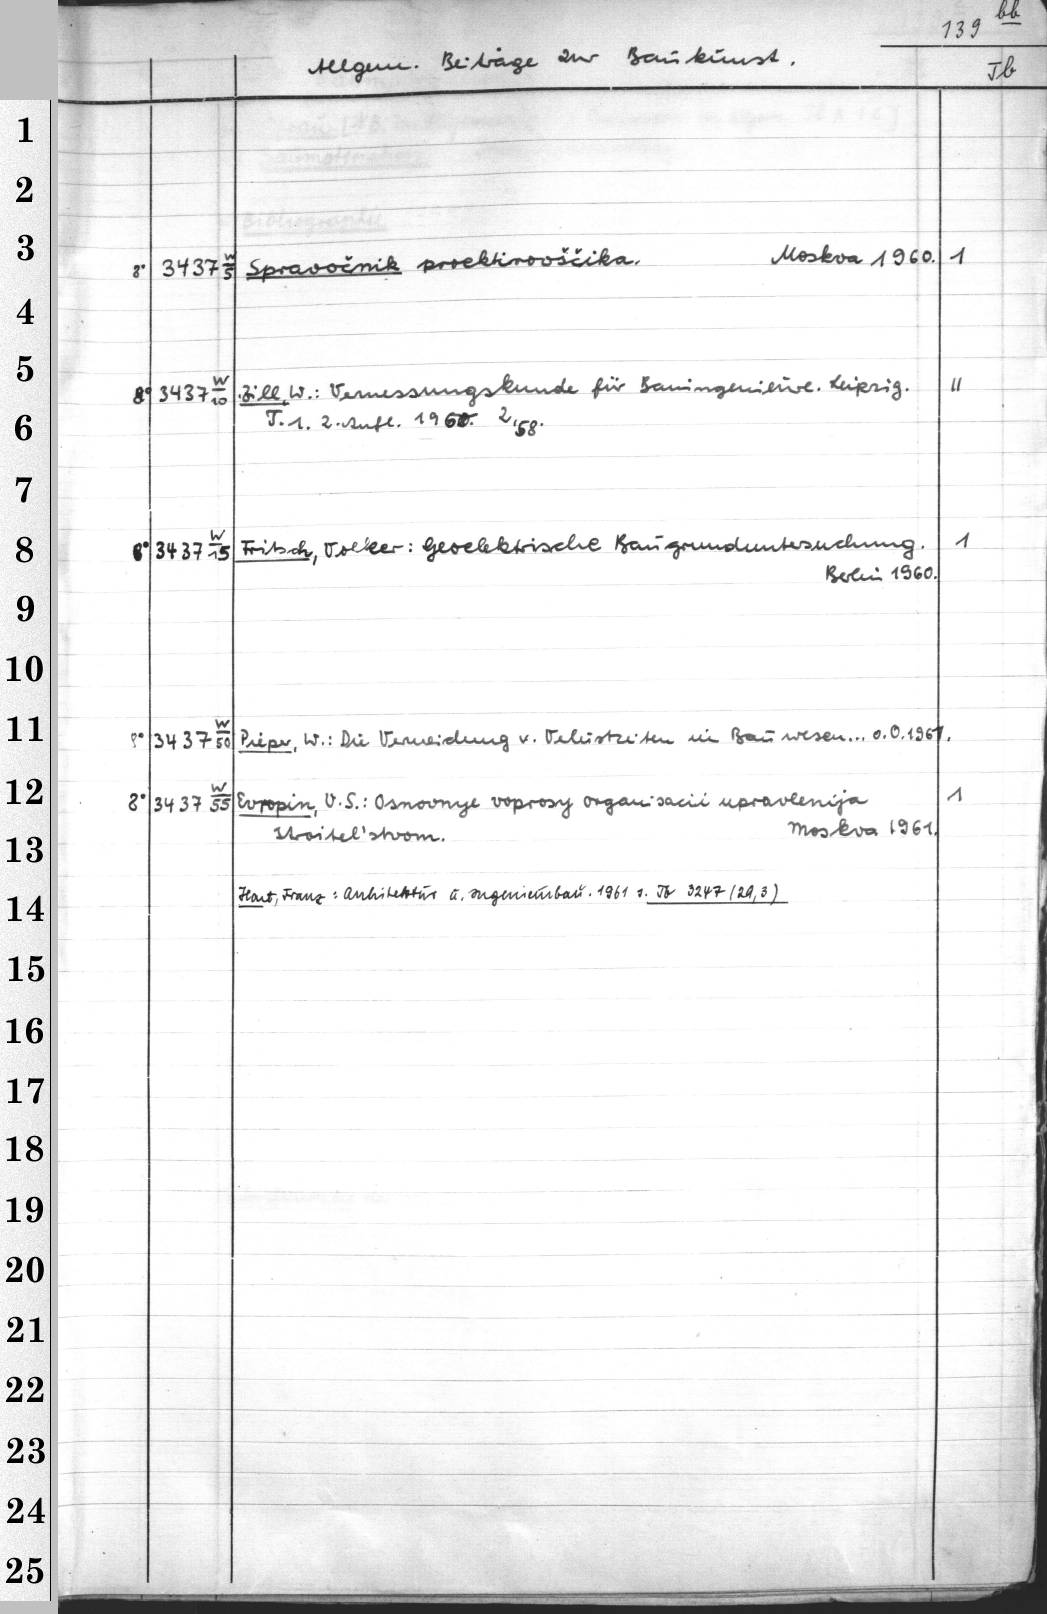 139 bb
Allgem. Beiträge zur Baukunst.
Jb
1
2
3
8° 3437 W/5 Spravočnik proektirovščika. Moskva 1960. 1
4
5
8° 3437 W/10 Zill, W.: Vermessungskunde für Bauingenieure. Leipzig. II
6
T. 1. 2. Aufl. 1960. 2, 58.
7
8
8° 3437 W/15 Fritsch, Volker: Geoelektrische Baugrunduntersuchung. 1
Berlin 1960.
9
10
11
8° 3437 W/50 Pieper, W.: Die Vermeidung v. Verlustzeiten im Bauwesen... o.O. 1961.
12
8° 3437 W/55 Evropin, V.S.: Osnovnye voprosy organisacii upravlenija 1
stroitel'stvom. Moskva 1961.
13
14
Hart, Franz: Architektur u. Ingenieurbau. 1961 s. Jb 3247 (29,3)
15
16
17
18
19
20
21
22
23
24
25